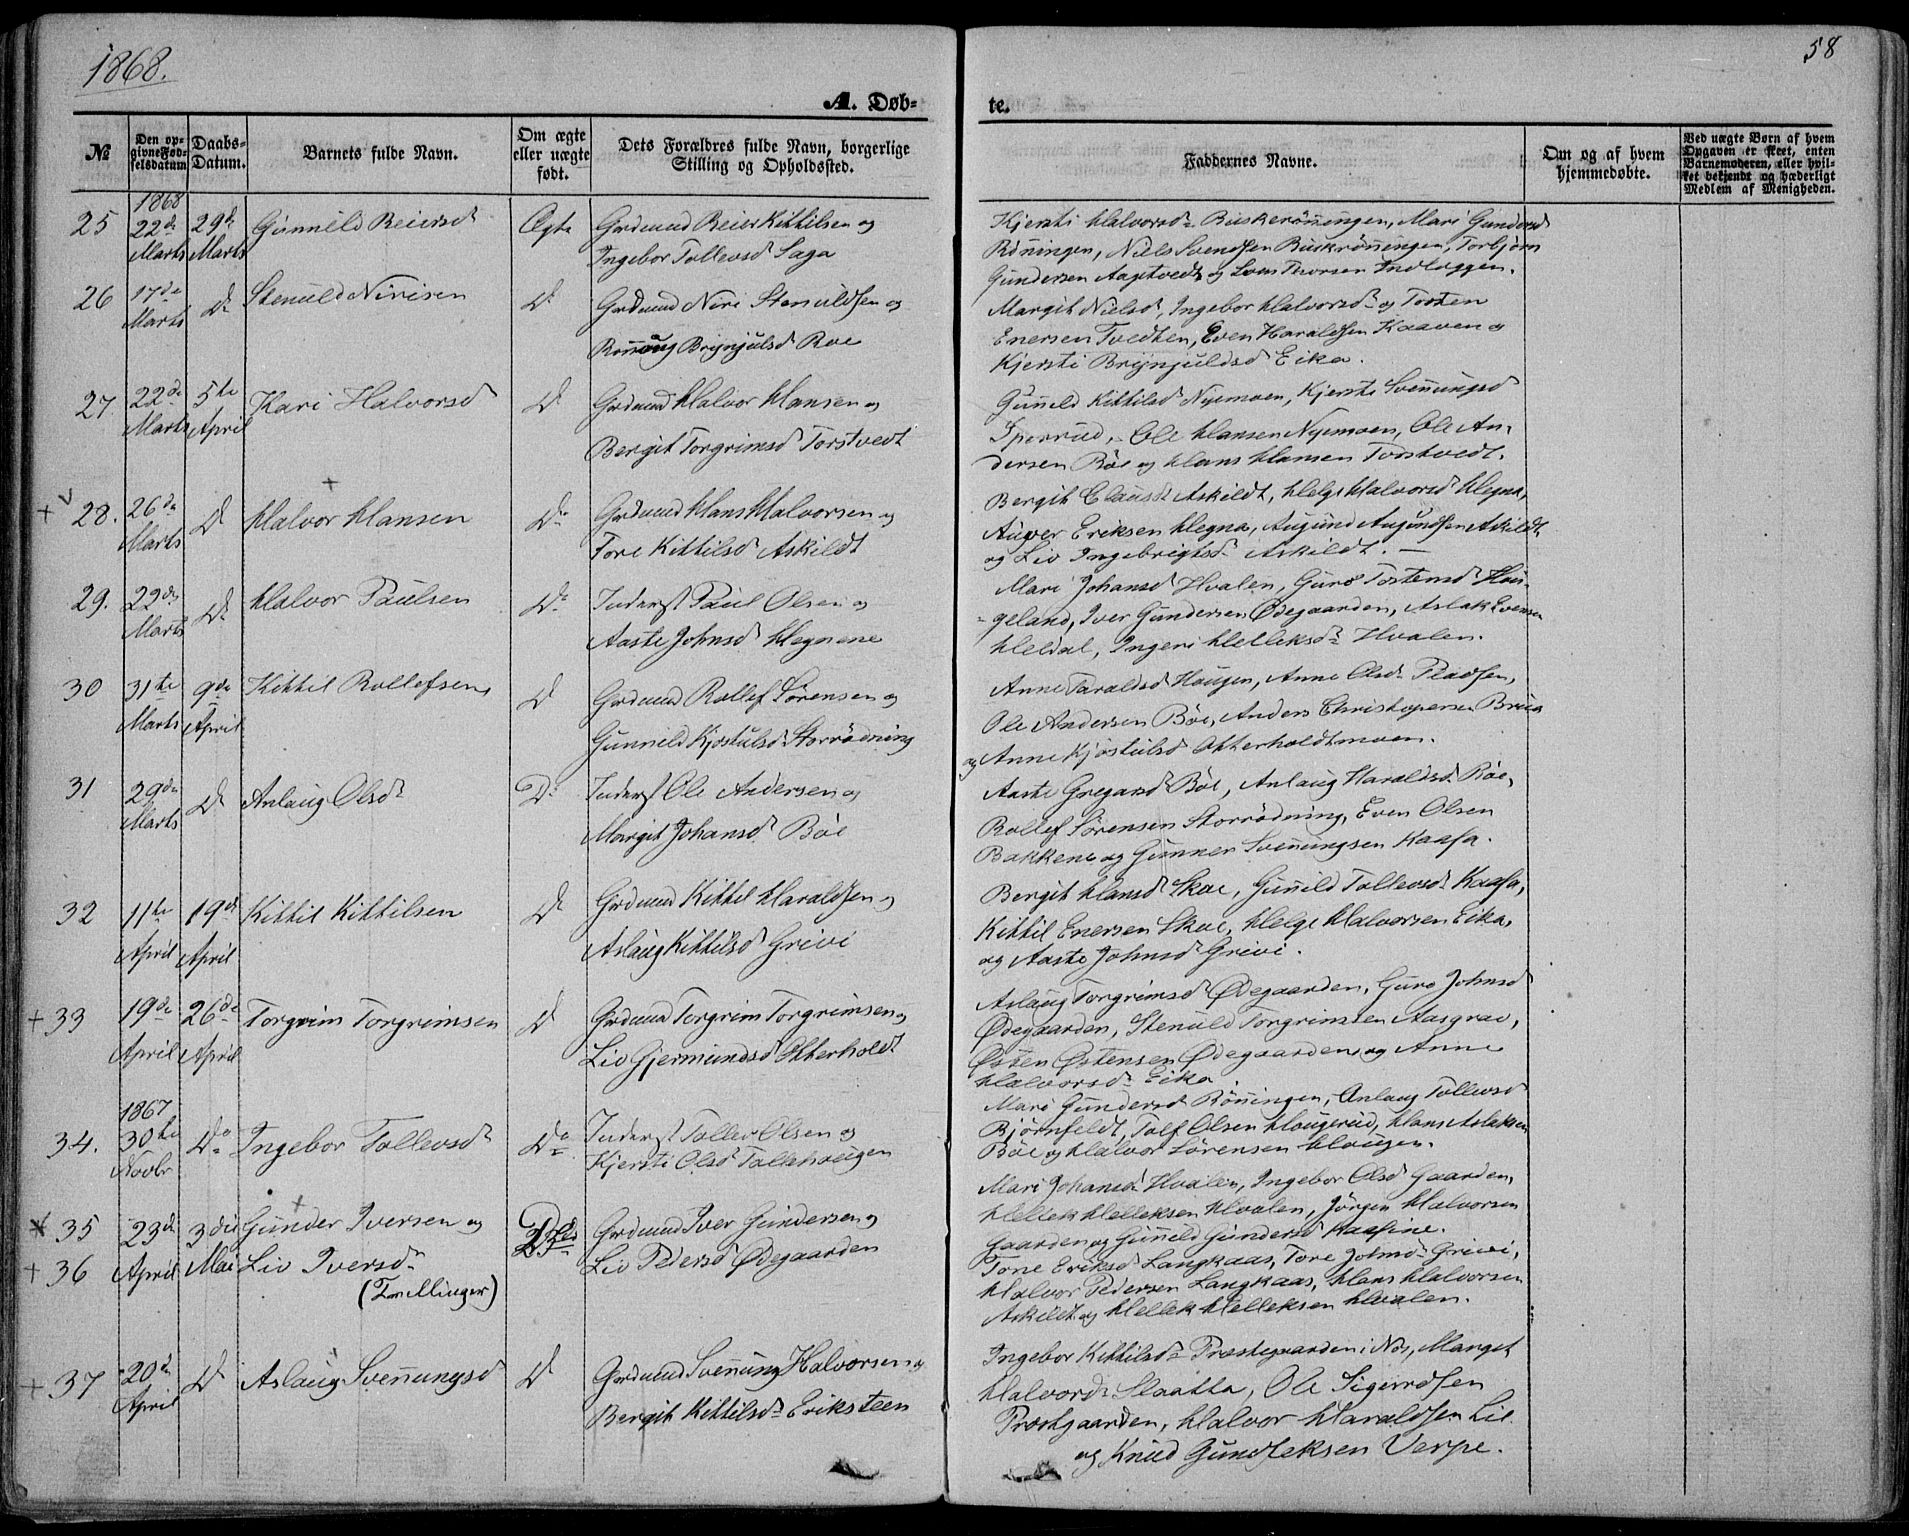 1868.
58
A. Døb-
te.
№
Den op-
givne Fød-
selsdatum
Daabs-
Datum.
Barnets fulde Navn.
Om ægte
eller uægte
født.
Dets Forældres fulde Navn, borgerlige
Stilling og Opholdssted.
Faddernes Navne.
Om og af hvem
hjemmedøbte.
Ved uægte Børn af hvem
Opgaven er skeet, enten
Barnemoderen, eller hvil-
ket bekjendt og hæderligt
Medlem af Menigheden.
1868
25 22de Marts 29de Marts Gunnild Reiersd Ægte
Grdmand Reier Kittilsen og
Ingebor Tollevsd Saga
Kjersti Halvorsd Buskerönningen, Mari Gundersd
Rönningen, Niels Svendsen Buskrönningen, Torbjørn
Gundersen Aagtvedt og
26 17de Marts Do Stenuld Nirisen Do
Grdmand Niri Stenuldsen og
Rönnoug Brynjulsd Roe
Margit Nielsd, Ingebor Halvorsd og Torsten
Enersen Tvedten, Even Haraldsen Kaaven og
Kjersti Brynjuldsd Eika.
27 22de Marts 5te April Kari Halvorsd Do
Grdmand Halvor Hansen og
Bergit Torgrimsd Torstvedt
Gunild Kittilsd Nyemoen, Kjersti Svennungsd
Sperrud, Ole Hansen Nyemoen, Ole An-
dersen Böe og Hans Hansen Torstvedt.
+ 28. 26de Marts Do Halvor Hansen Do
Grdmand Hans Halvorsen og
Tore Kittilsd Askildt
Bergit Clausd Askildt, Helge Halvorsd Hegna,
Auver Eriksen Hegna, Augund Augundsen Askildt
og Liv Ingebrigtsd Askildt. —
29. 22de Marts Do Halvor Paulsen Do
Inderst Paul Olsen og
Aaste Johnsd Hegnene
Mari Johansd Hvalen, Guro Tostensd Hau-
geland, Iver Gundersen Ødegaarden, Aslak Evensen
Heldal, Ingeri Helleksd Hvalen.
30 31te Marts 9de April Kittil Rollefsen Do
Grdmand Rollef Sörensen og
Gunneld Kjöstulsd Storrödning
Anne Taraldsd Haugen, Anne Olsd Pladsen,
Ole Andersen Böe, Anders Christopersen
og Anne Kjöstulsd Otterholdtmoen.
31 29de Marts Do Anlaug Olsd Do
Inderst Ole Andersen og
Margit Johansd Böe
Aaste Gregarsd Böe, Anlaug Haraldsd Röe,
Rollef Sörensen Storrödning, Even Olsen
Bakken og Gunner Svennungsen Kaasa.
32 11te April 19de April Kittil Kittilsen Do
Grdmand Kittil Haraldsen og
Aslaug Kittilsd Grivi
Bergit Hansd Skoe, Gunild Tollevsd Kaasa,
Kittil Enersen Skoe, Helge Halvorsen Eika,
og Aaste Johnsd Grivi.
+ 33 19de April 26de April Torgrim Torgrimsen Do
Grdmand Torgrim Torgrimsen og
Liv Gjermundsd Otterholdt
Aslaug Torgrimsd Ødegaarden, Guro Johnsd
Ødegaarden, Stenuld Torgrimsen Aasgrav,
Østen Østensen Ødegaarden og Anne
Halvorsd Eika.
1867
34. 30te Novbr Do Ingebor Tollevsd Do
Inderst Tollev Olsen og
Kjersti Olsd Talkhaugen
Mari Gundersd Rönningen, Anlaug Tollevsd
Björnfeldt, Tolf Olsen Haugerud, Hans Aslaksen
Böe og Halvor Sörensen Haugen.
35 23de April 3die Mai Gunder Iversen og
+ 36 Liv Iversd
(Tvillinger)
Grdmand Iver Gundersen og
Liv Pedersd Ødegaarden
Mari Johansd Hvalen, Ingebor Olsd Gaarden,
Hellek Helleksen Hvalen, Jörgen Halvorsen
Gaarden og Gunild Gundersd Kaasine.
Tone Eriksd Langkaas, Tore Johnsd Grivi,
Halvor Pedersen Langkaas, Hans Halvorsen
Askildt og Hellek Helleksen Hvalen.
+ 37 20de April Do Aslaug Svennungsd Do
Grdmand Svennung Halvorsen og
Bergit Kittilsd Eriksteen
Ingebor Kittilsd Præstegaarden i Nes, Marget
Halvorsd Slaatta, Ole Sigurdsen
Præstgaarden, Halvor Haraldsen Lie
og Knud Gundleksen Verpe.